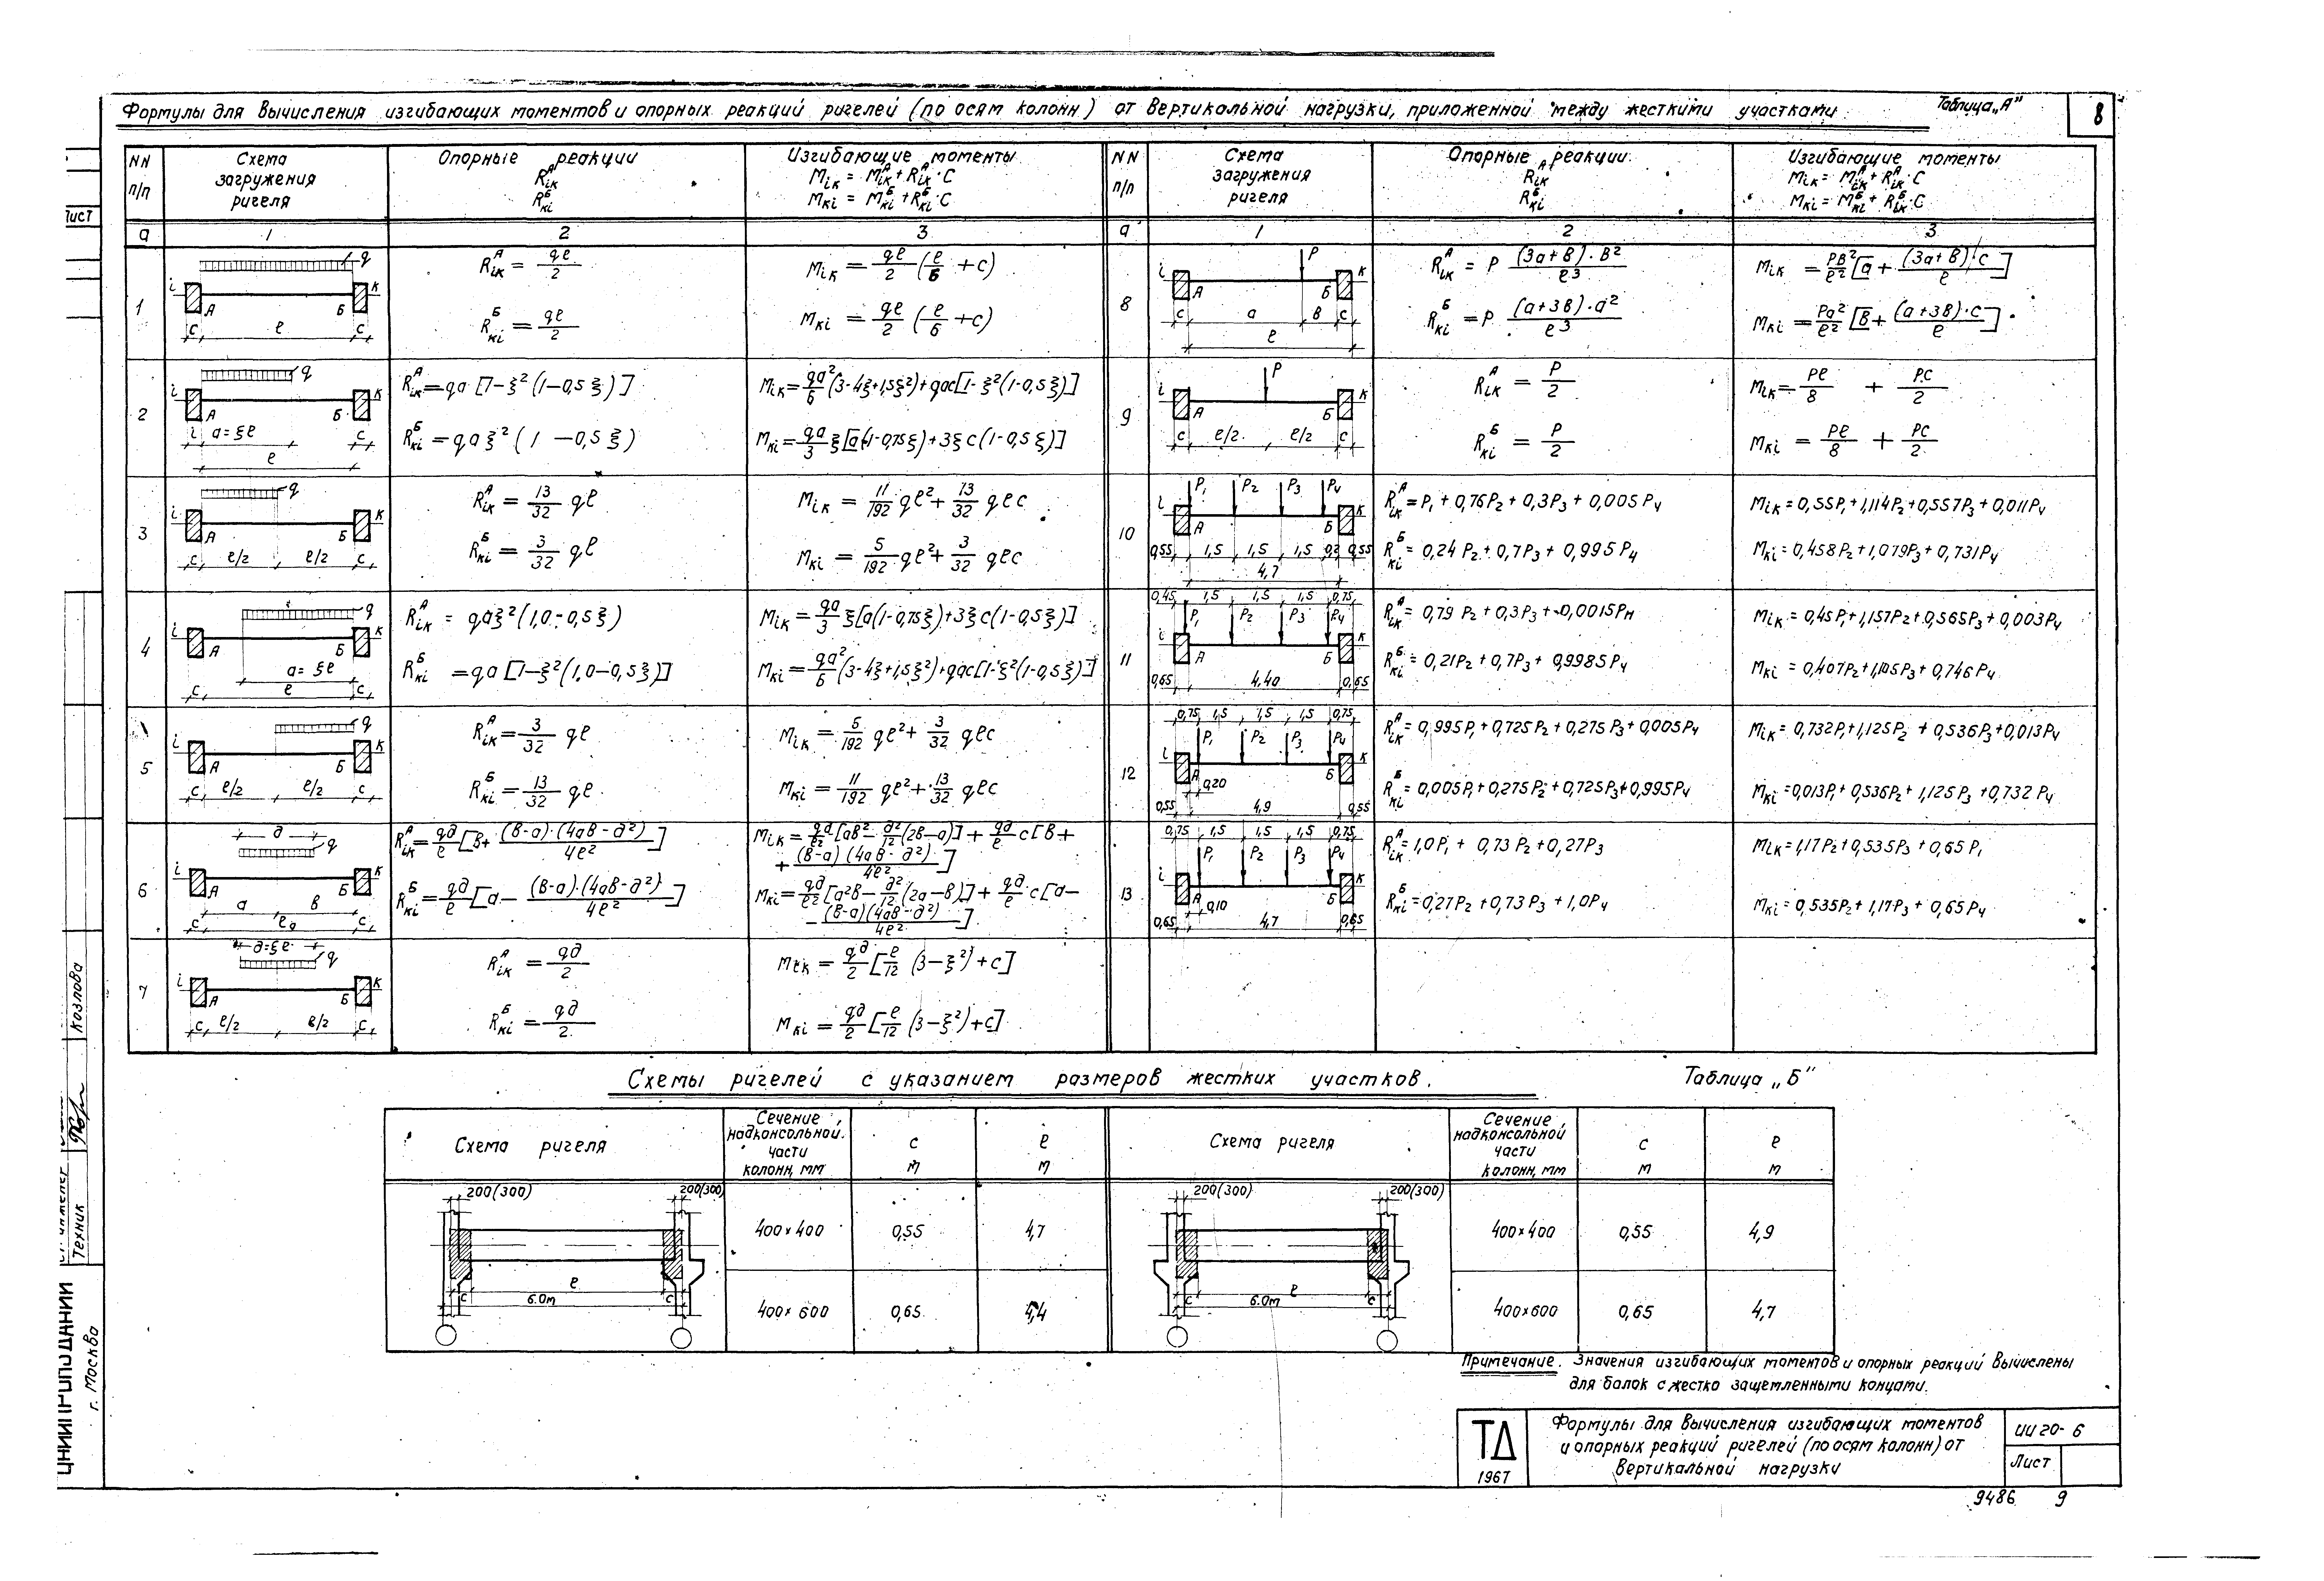 Формулы для вычисления изгибающих моментов и опорных реакций ригелей (по осям колонн) от вертикальной нагрузки, приложенной между жесткими участками
Таблица „А"
8
NN п/п
Схема загружения ригеля
Опорные реакции R^А_iк R^Б_кi
Изгибающие моменты M_iк = M^А_iк + R^А_iк · C M_кi = M^Б_кi + R^Б_кi · C
NN п/п
Схема загружения ригеля
Опорные реакции. R^А_iк R^Б_кi
Изгибающие моменты M_iк = M^А_iк + R^А_iк · C M_кi = M^Б_кi + R^Б_iк · C
а 1 2 3 а 1 2 3
1
q i к А Б c ℓ c
R^А_iк = qℓ/2
R^Б_кi = qℓ/2
M_iк = qℓ/2 (ℓ/6 + c)
M_кi = qℓ/2 (ℓ/6 + c)
2
q i к А Б a=ξℓ c ℓ
R^А_iк = qa [1-ξ² (1-0,5ξ)]
R^Б_кi = qaξ² (1-0,5ξ)
M_iк = qa²/6 (3-4ξ+1,5ξ²)+qac[1-ξ²(1-0,5ξ)]
M_кi = qa/3 ξ[a(1-0,75ξ)+3ξc(1-0,5ξ)]
3
q i к А Б c ℓ/2 ℓ/2 c
R^А_iк = 13/32 qℓ
R^Б_кi = 3/32 qℓ
M_iк = 11/192 qℓ² + 13/32 qℓc
M_кi = 5/192 qℓ² + 3/32 qℓc
4
q i к А Б a=ξℓ c ℓ c
R^А_iк = qaξ² (1,0-0,5ξ)
R^Б_кi = qa [1-ξ² (1,0-0,5ξ)]
M_iк = qa/3 ξ[a(1-0,75ξ)+3ξc(1-0,5ξ)]
M_кi = qa²/6 (3-4ξ+1,5ξ²)+qac[1-ξ²(1-0,5ξ)]
5
q i к А Б c ℓ/2 ℓ/2 c
R^А_iк = 3/32 qℓ
R^Б_кi = 13/32 qℓ
M_iк = 5/192 qℓ² + 3/32 qℓc
M_кi = 11/192 qℓ² + 13/32 qℓc
6
д q i к А Б a в c c
R^А_iк = qд/ℓ [в + (в-a)·(4aв-д²)/4ℓ²]
R^Б_кi = qд/ℓ [a - (в-a)·(4aв-д²)/4ℓ²]
M_iк = qд/ℓ² [aв² - д²/12 (2в-a)] + qд/ℓ c [в +
+ (в-a)(4aв-д²)/4ℓ²]
M_кi = qд/ℓ² [a²в - д²/12 (2a-в)] + qд/ℓ c [a -
- (в-a)(4aв-д²)/4ℓ²]
7
д=ξℓ q i к А Б c ℓ/2 ℓ/2 c
R^А_iк = qд/2
R^Б_кi = qд/2
M_iк = qд/2 [ℓ/12 (3-ξ²)+c]
M_кi = qд/2 [ℓ/12 (3-ξ²)+c]
8
P i к А Б c a в c ℓ
R^А_iк = P (3a+в)·в²/ℓ³
R^Б_кi = P (a+3в)·a²/ℓ³
M_iк = Pв²/ℓ² [a + (3a+в)·c/ℓ]
M_кi = Pa²/ℓ² [в + (a+3в)·c/ℓ]
9
P i к А Б c ℓ/2 ℓ/2 c
R^А_iк = P/2
R^Б_кi = P/2
M_iк = Pℓ/8 + Pc/2
M_кi = Pℓ/8 + Pc/2
10
P1 P2 P3 P4 i к А Б 0,55 1,5 1,5 1,5 0,2 0,55 4,7
R^А_iк = P1 + 0,76P2 + 0,3P3 + 0,005P4
R^Б_кi = 0,24P2 + 0,7P3 + 0,995P4
M_iк = 0,55P1 + 1,114P2 + 0,557P3 + 0,011P4
M_кi = 0,458P2 + 1,079P3 + 0,731P4
11
0,45 1,5 1,5 1,5 0,75 P1 P2 P3 P4 i к А Б 0,65 4,40 0,65
R^А_iк = 0,79P2 + 0,3P3 + 0,0015Pн
R^Б_кi = 0,21P2 + 0,7P3 + 0,9985P4
M_iк = 0,45P1 + 1,157P2 + 0,565P3 + 0,003P4
M_кi = 0,407P2 + 1,105P3 + 0,746P4
12
0,75 1,5 1,5 1,5 0,75 P1 P2 P3 P4 i к А Б 0,20 0,55 4,9 0,55
R^А_iк = 0,995P1 + 0,725P2 + 0,275P3 + 0,005P4
R^Б_кi = 0,005P1 + 0,275P2 + 0,725P3 + 0,995P4
M_iк = 0,732P1 + 1,125P2 + 0,536P3 + 0,013P4
M_кi = 0,013P1 + 0,536P2 + 1,125P3 + 0,732P4
13
0,75 1,5 1,5 1,5 0,75 P1 P2 P3 P4 i к А Б 0,10 0,65 4,7 0,65
R^А_iк = 1,0P1 + 0,73P2 + 0,27P3
R^Б_кi = 0,27P2 + 0,73P3 + 1,0P4
M_iк = 1,17P2 + 0,535P3 + 0,65P1
M_кi = 0,535P2 + 1,17P3 + 0,65P4
Схемы ригелей с указанием размеров жестких участков.
Таблица „Б"
Схема ригеля
Сечение надконсольной части колонн, мм
c м
ℓ м
Схема ригеля
Сечение надконсольной части колонн, мм
c м
ℓ м
200(300) 200(300) ℓ c 6.0м c
400×400 0,55 4,7
400×600 0,65 4,4
200(300) 200(300) ℓ c 6.0м c
400×400 0,55 4,9
400×600 0,65 4,7
Примечание. Значения изгибающих моментов и опорных реакций вычислены
для балок с жестко защемленными концами.
ТД
1967
Формулы для вычисления изгибающих моментов
и опорных реакций ригелей (по осям колонн) от
вертикальной нагрузки
ИИ 20-6
Лист
9486 9
Лист
Козлова
Техник
г. Москва